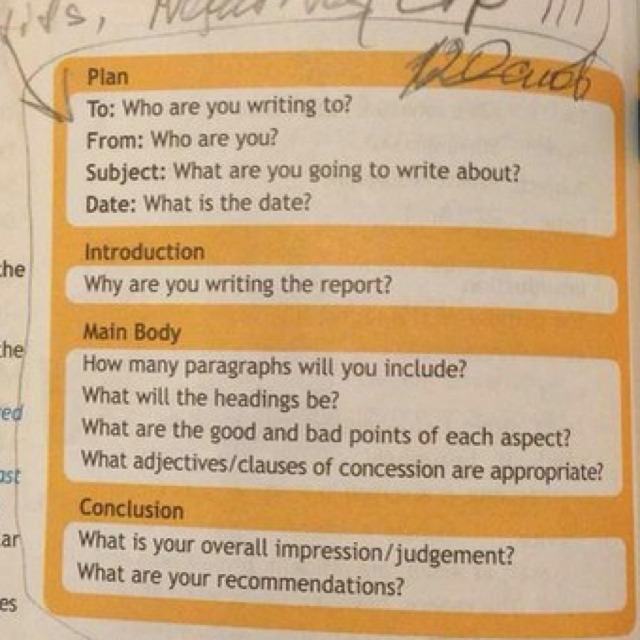 120 слов
Plan
To: Who are you writing to?
From: Who are you?
Subject: What are you going to write about?
Date: What is the date?
the
Introduction
Why are you writing the report?
the
Main Body
How many paragraphs will you include?
What will the headings be?
What are the good and bad points of each aspect?
What adjectives/clauses of concession are appropriate?
Conclusion
What is your overall impression/judgement?
What are your recommendations?